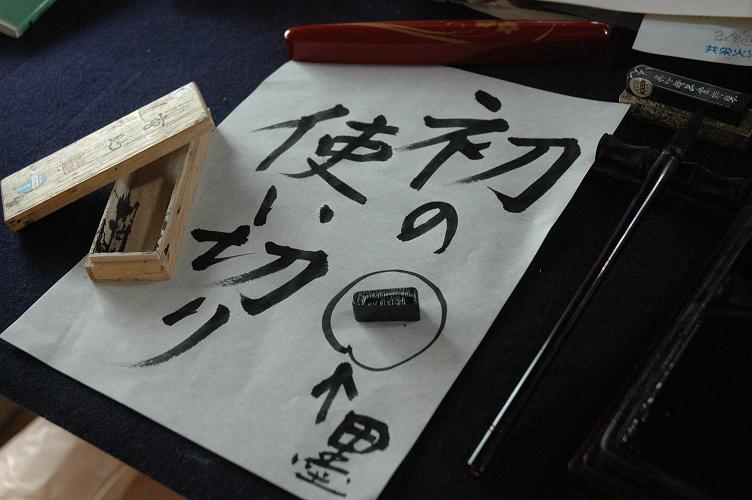 初の
使い切り
↑墨
共栄火災